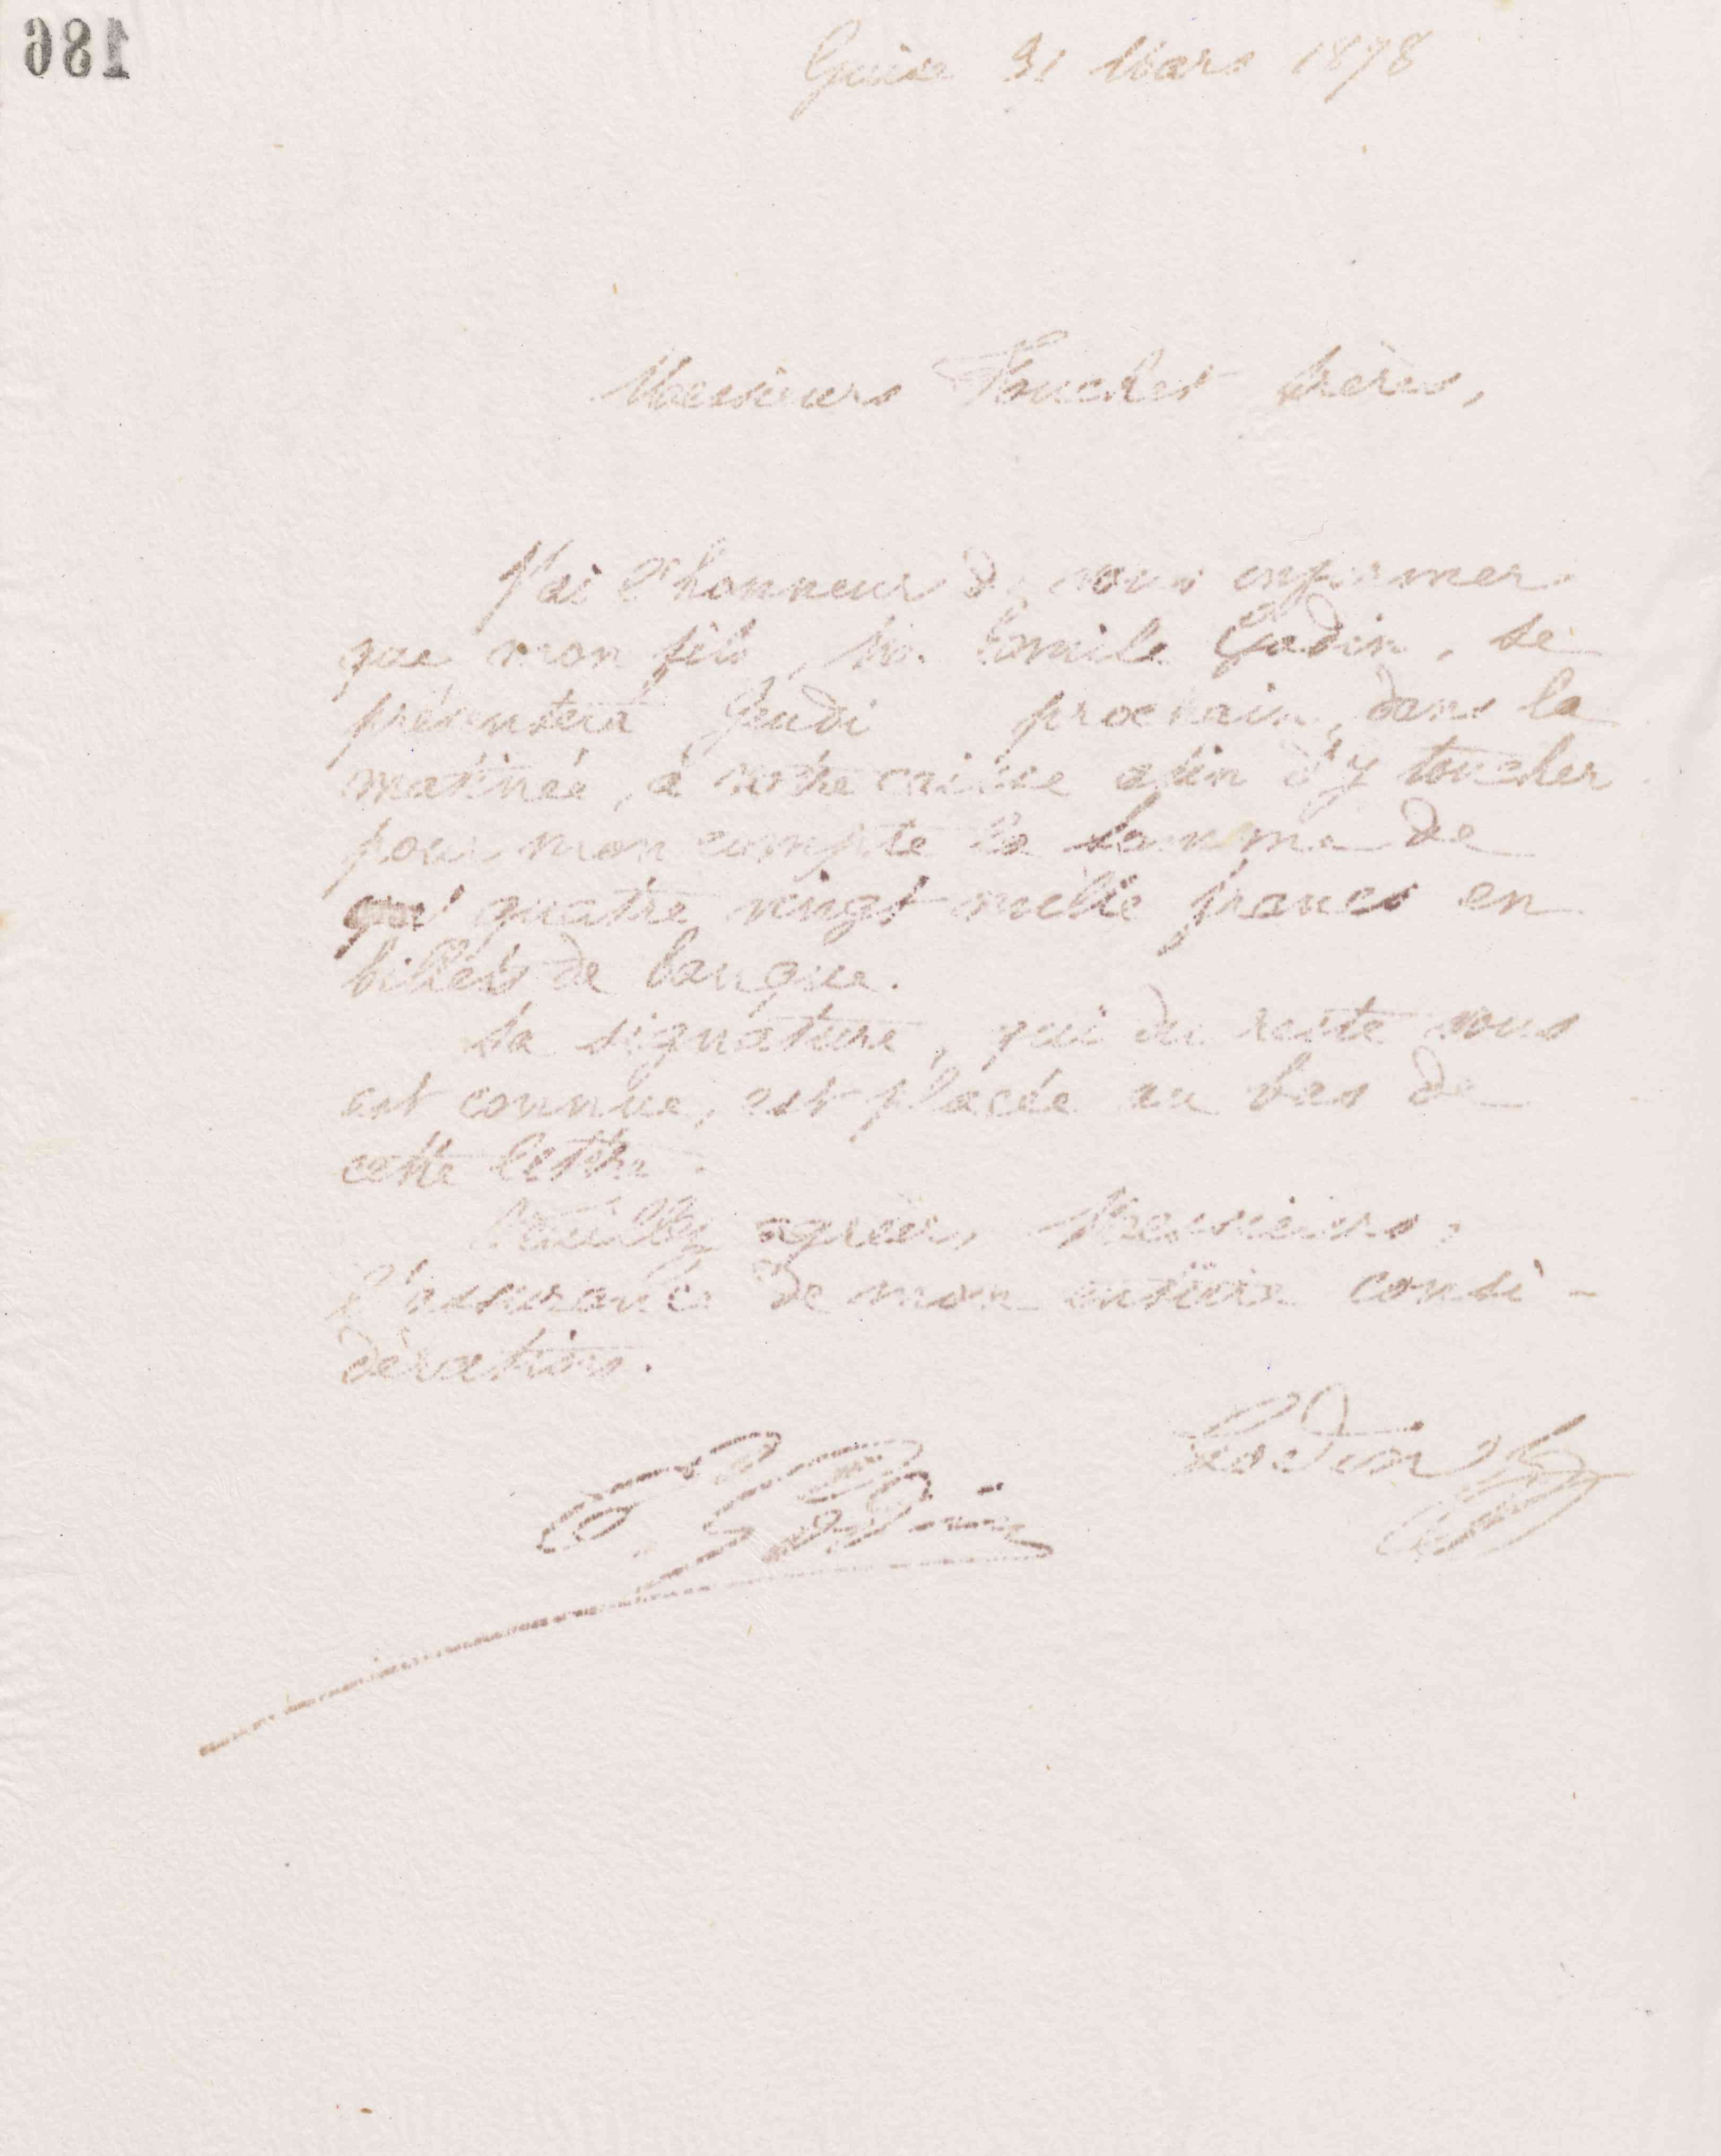 186
Guise 31 Mars 1878
Messieurs Foucher frères,
J'ai l'honneur de vous informer
que mon fils, Mr. Emile Godin, se
présentera Jeudi prochain, dans la
matinée, à votre caisse afin d'y toucher
pour mon compte la somme de
quatre vingt mille francs en
billets de banque.
Sa signature, qui du reste vous
est connue, est placée au bas de
cette lettre.
Veuillez agréer, Messieurs,
l'assurance de mon entière consi-
dération.
Godin
E. Godin